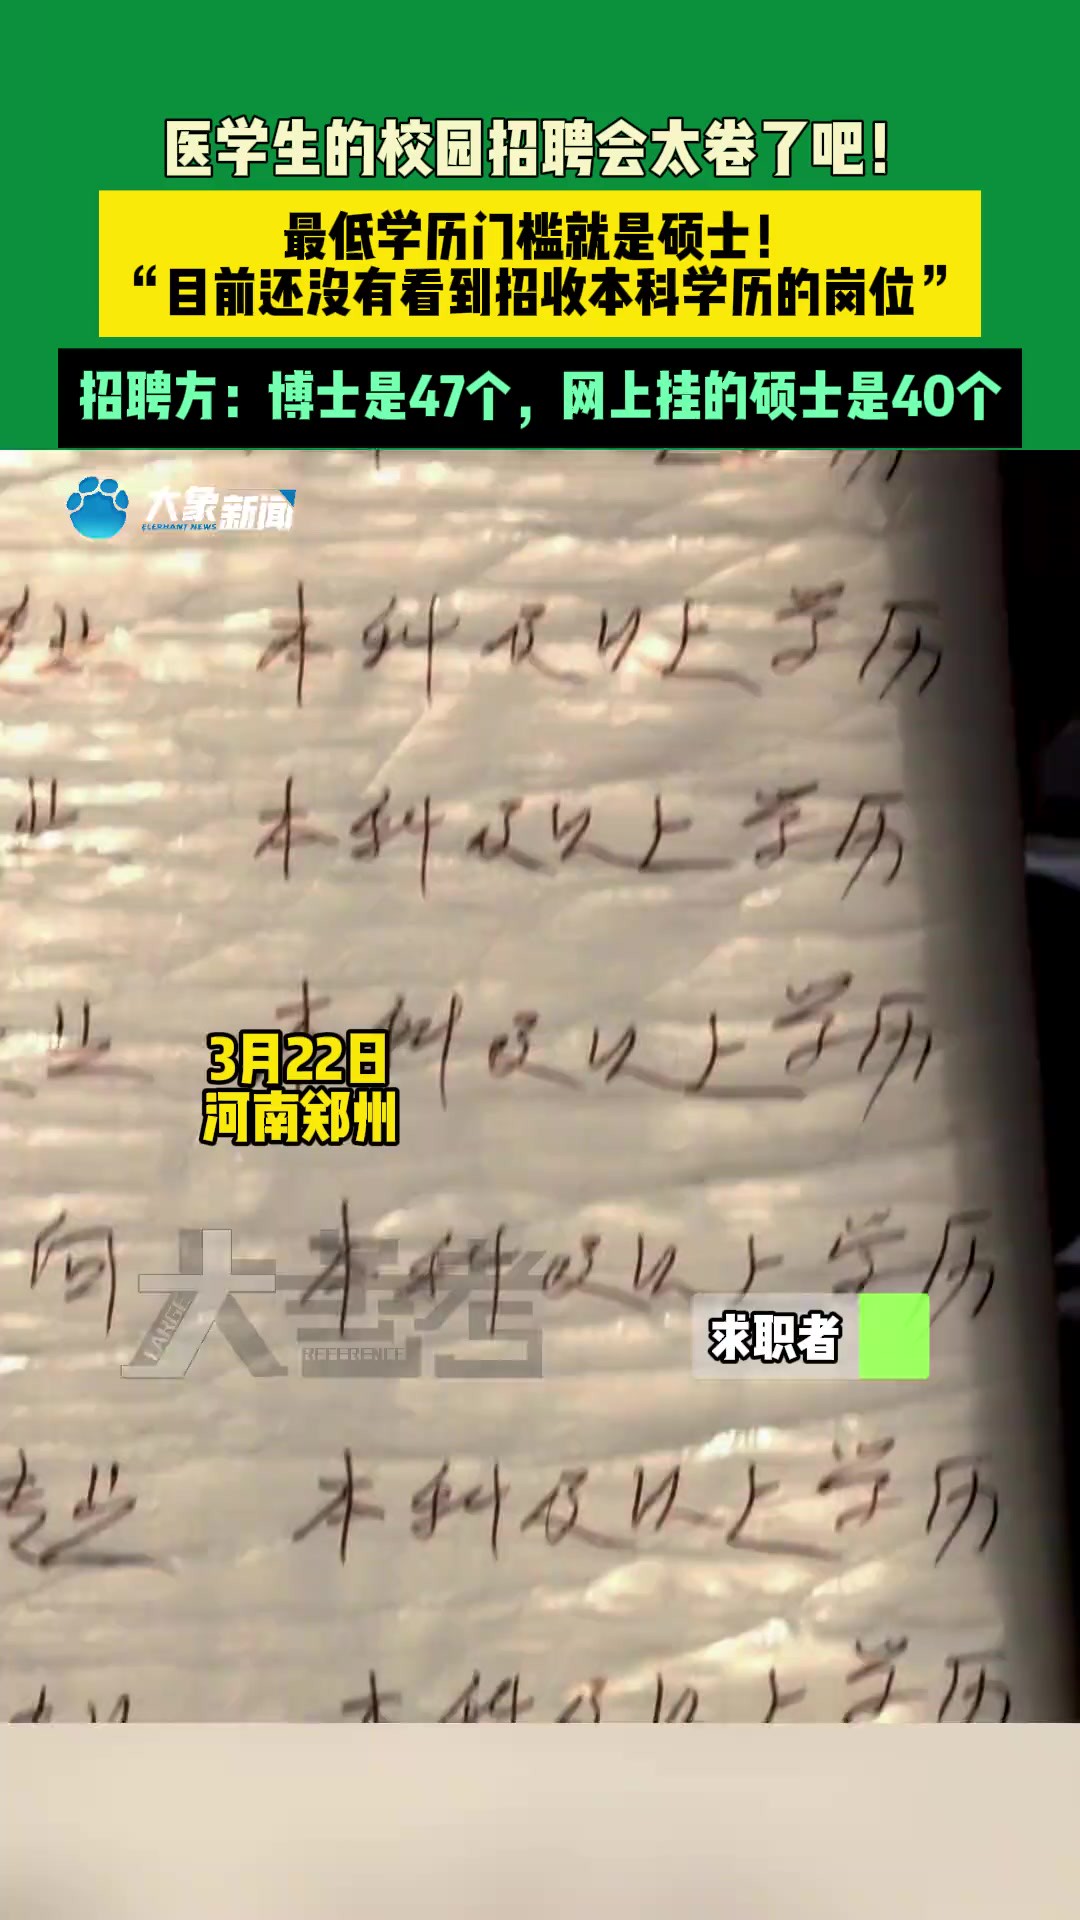 医学生的校园招聘会太卷了吧！
最低学历门槛就是硕士！
“目前还没有看到招收本科学历的岗位”
招聘方：博士是47个，网上挂的硕士是40个
大象新闻
ELEPHANT NEWS
业 本科及以上学历
业 本科及以上学历
业 本科及以上学历
3月22日
河南郑州
向 本科及以上学历
大参考
LARGE
REFERENCE
求职者
专业 本科及以上学历
本科及以上学历